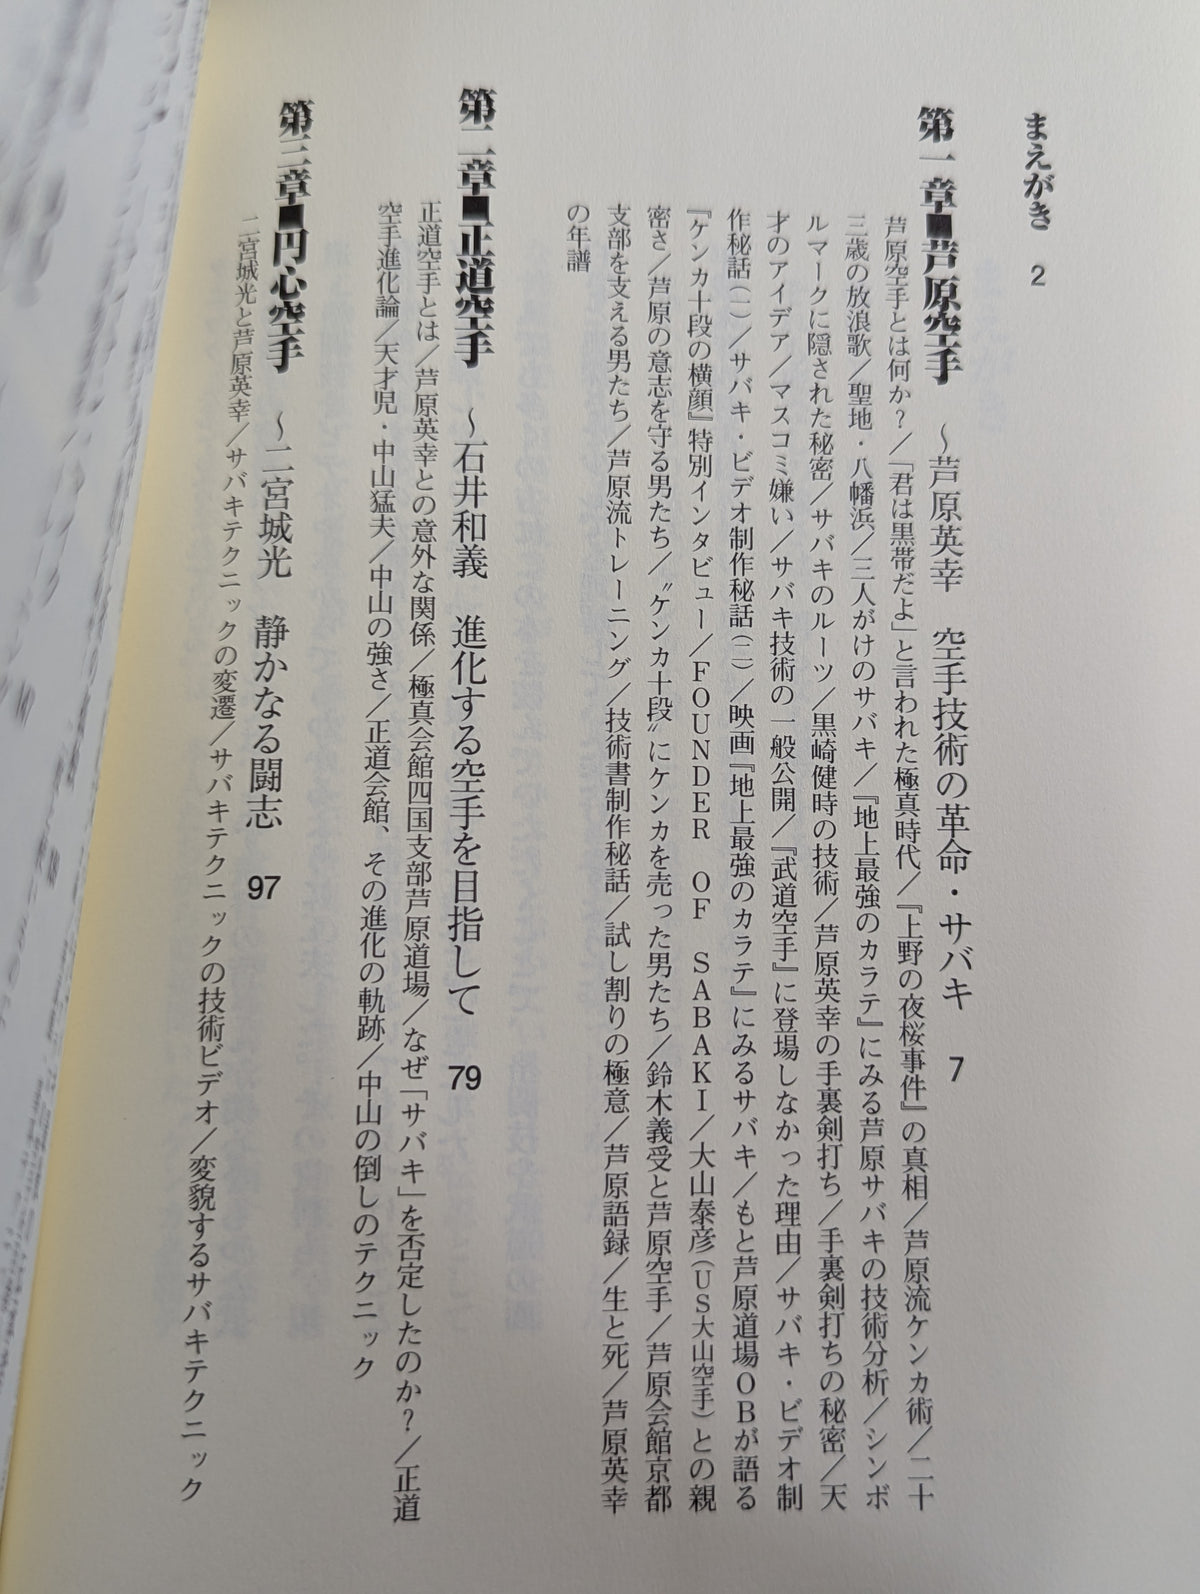 まえがき 2
第一章■芦原空手 〜芦原英幸 空手技術の革命・サバキ 7
芦原空手とは何か?/「君は黒帯だよ」と言われた極真時代/『上野の夜桜事件』の真相/芦原流ケンカ術/二十
三歳の放浪歌/聖地・八幡浜/三人がけのサバキ/『地上最強のカラテ』にみる芦原サバキの技術分析/シンボ
ルマークに隠された秘密/サバキのルーツ/黒崎健時の技術/芦原英幸の手裏剣打ち/手裏剣打ちの秘密/天
才のアイデア/マスコミ嫌い/サバキ技術の一般公開/『武道空手』に登場しなかった理由/サバキ・ビデオ制
作秘話(一)/サバキ・ビデオ制作秘話(二)/映画『地上最強のカラテ』にみるサバキ/もと芦原道場OBが語る
『ケンカ十段の横顔』特別インタビュー/FOUNDER OF SABAKI/大山泰彦(US大山空手)との親
密さ/芦原の意志を守る男たち/〝ケンカ十段〟にケンカを売った男たち/鈴木義受と芦原空手/芦原会館京都
支部を支える男たち/芦原流トレーニング/技術書制作秘話/試し割りの極意/芦原語録/生と死/芦原英幸
の年譜
第二章■正道空手 〜石井和義 進化する空手を目指して 79
正道空手とは/芦原英幸との意外な関係/極真会館四国支部芦原道場/なぜ「サバキ」を否定したのか?/正道
空手進化論/天才児・中山猛夫/中山の強さ/正道会館、その進化の軌跡/中山の倒しのテクニック
第三章■円心空手 〜二宮城光 静かなる闘志 97
二宮城光と芦原英幸/サバキテクニックの変遷/サバキテクニックの技術ビデオ/変貌するサバキテクニック